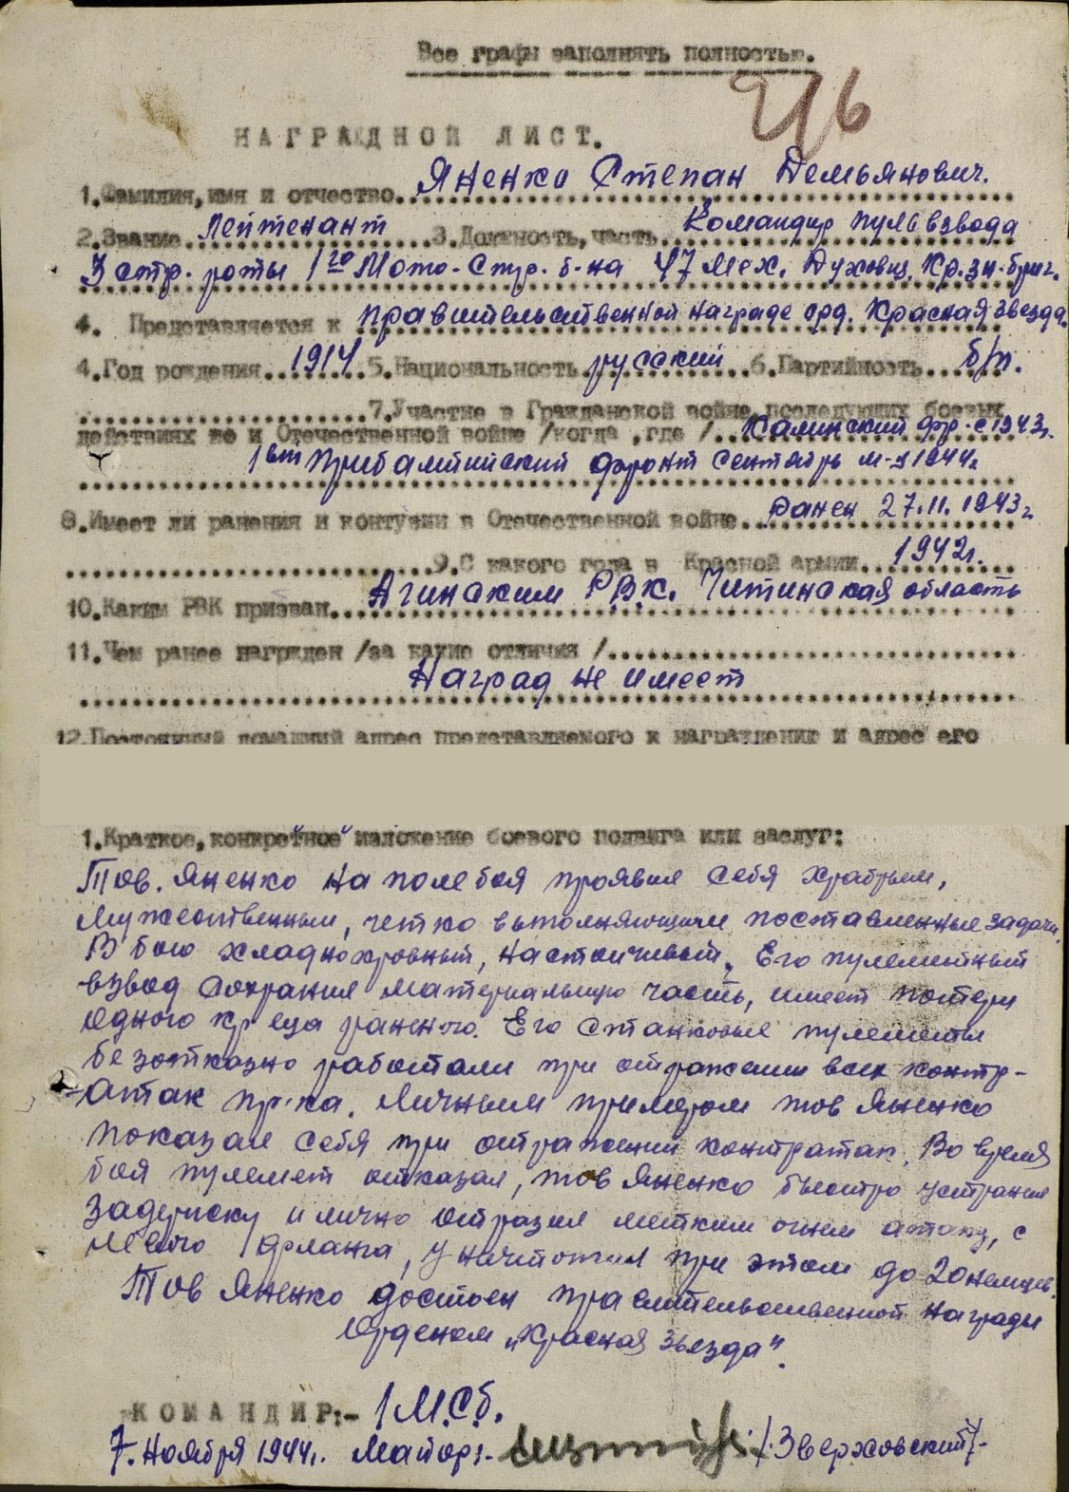 Все графы заполнять полностью.
НАГРАДНОЙ ЛИСТ.
1.Фамилия,имя и отчество..Яненко Степан Демьянович.
2.Звание..лейтенант....3.Должность,часть..Командир пульвзвода
3 стр. роты 1го Мото-Стр. б-на 47 Мех. Духовщ. Кр.зн.бриг.
4. Представляется к правительственной награде орд. Красная Звезда.
4.Год рождения..1914.5.Национальность.русский..6.Партийность..б/п.
7.Участие в Гражданской войне,последующих боевых
действиях не и Отечественной войне /когда ,где /..Калинский фр. с 1943г.
1вый Прибалтийский фронт Сентябрь м-ц 1944г.
8.Имеет ли ранения и контузии в Отечественной войне..Ранен 27.11.1943г.
9.С какого года в Красной армии..1942г.
10.Каким РВК призван..Агинским РВК. Читинская область
11.Чем ранее награжден /за какие отличия /
Наград не имеет
12.Постоянный домашний адрес представляемого к награждению и адрес его
1.Краткое,конкретное изложение боевого подвига или заслуг:
Тов. Яненко на поле боя проявил себя храбрым,
мужественным, четко выполняющим поставленные задачи.
В бою хладнокровный, настойчивый. Его пулеметный
взвод сохранил материальную часть, имеет потери
одного кр-ца раненого. Его станковые пулеметы
безотказно работали при отражении всех контр-
атак пр-ка. Личным примером тов Яненко
показал себя при отражении контратак. Во время
боя пулемет отказал, тов Яненко быстро устранил
задержку и лично отразил метким огнем атаку, с
левого фланга, уничтожил при этом до 20 немцев.
Тов Яненко достоен правительственной награды
Орденом „Красная Звезда".
КОМАНДИР:- 1 М.С.б.
7. Ноября 1944г. Майор:- /Зверховский/-
216